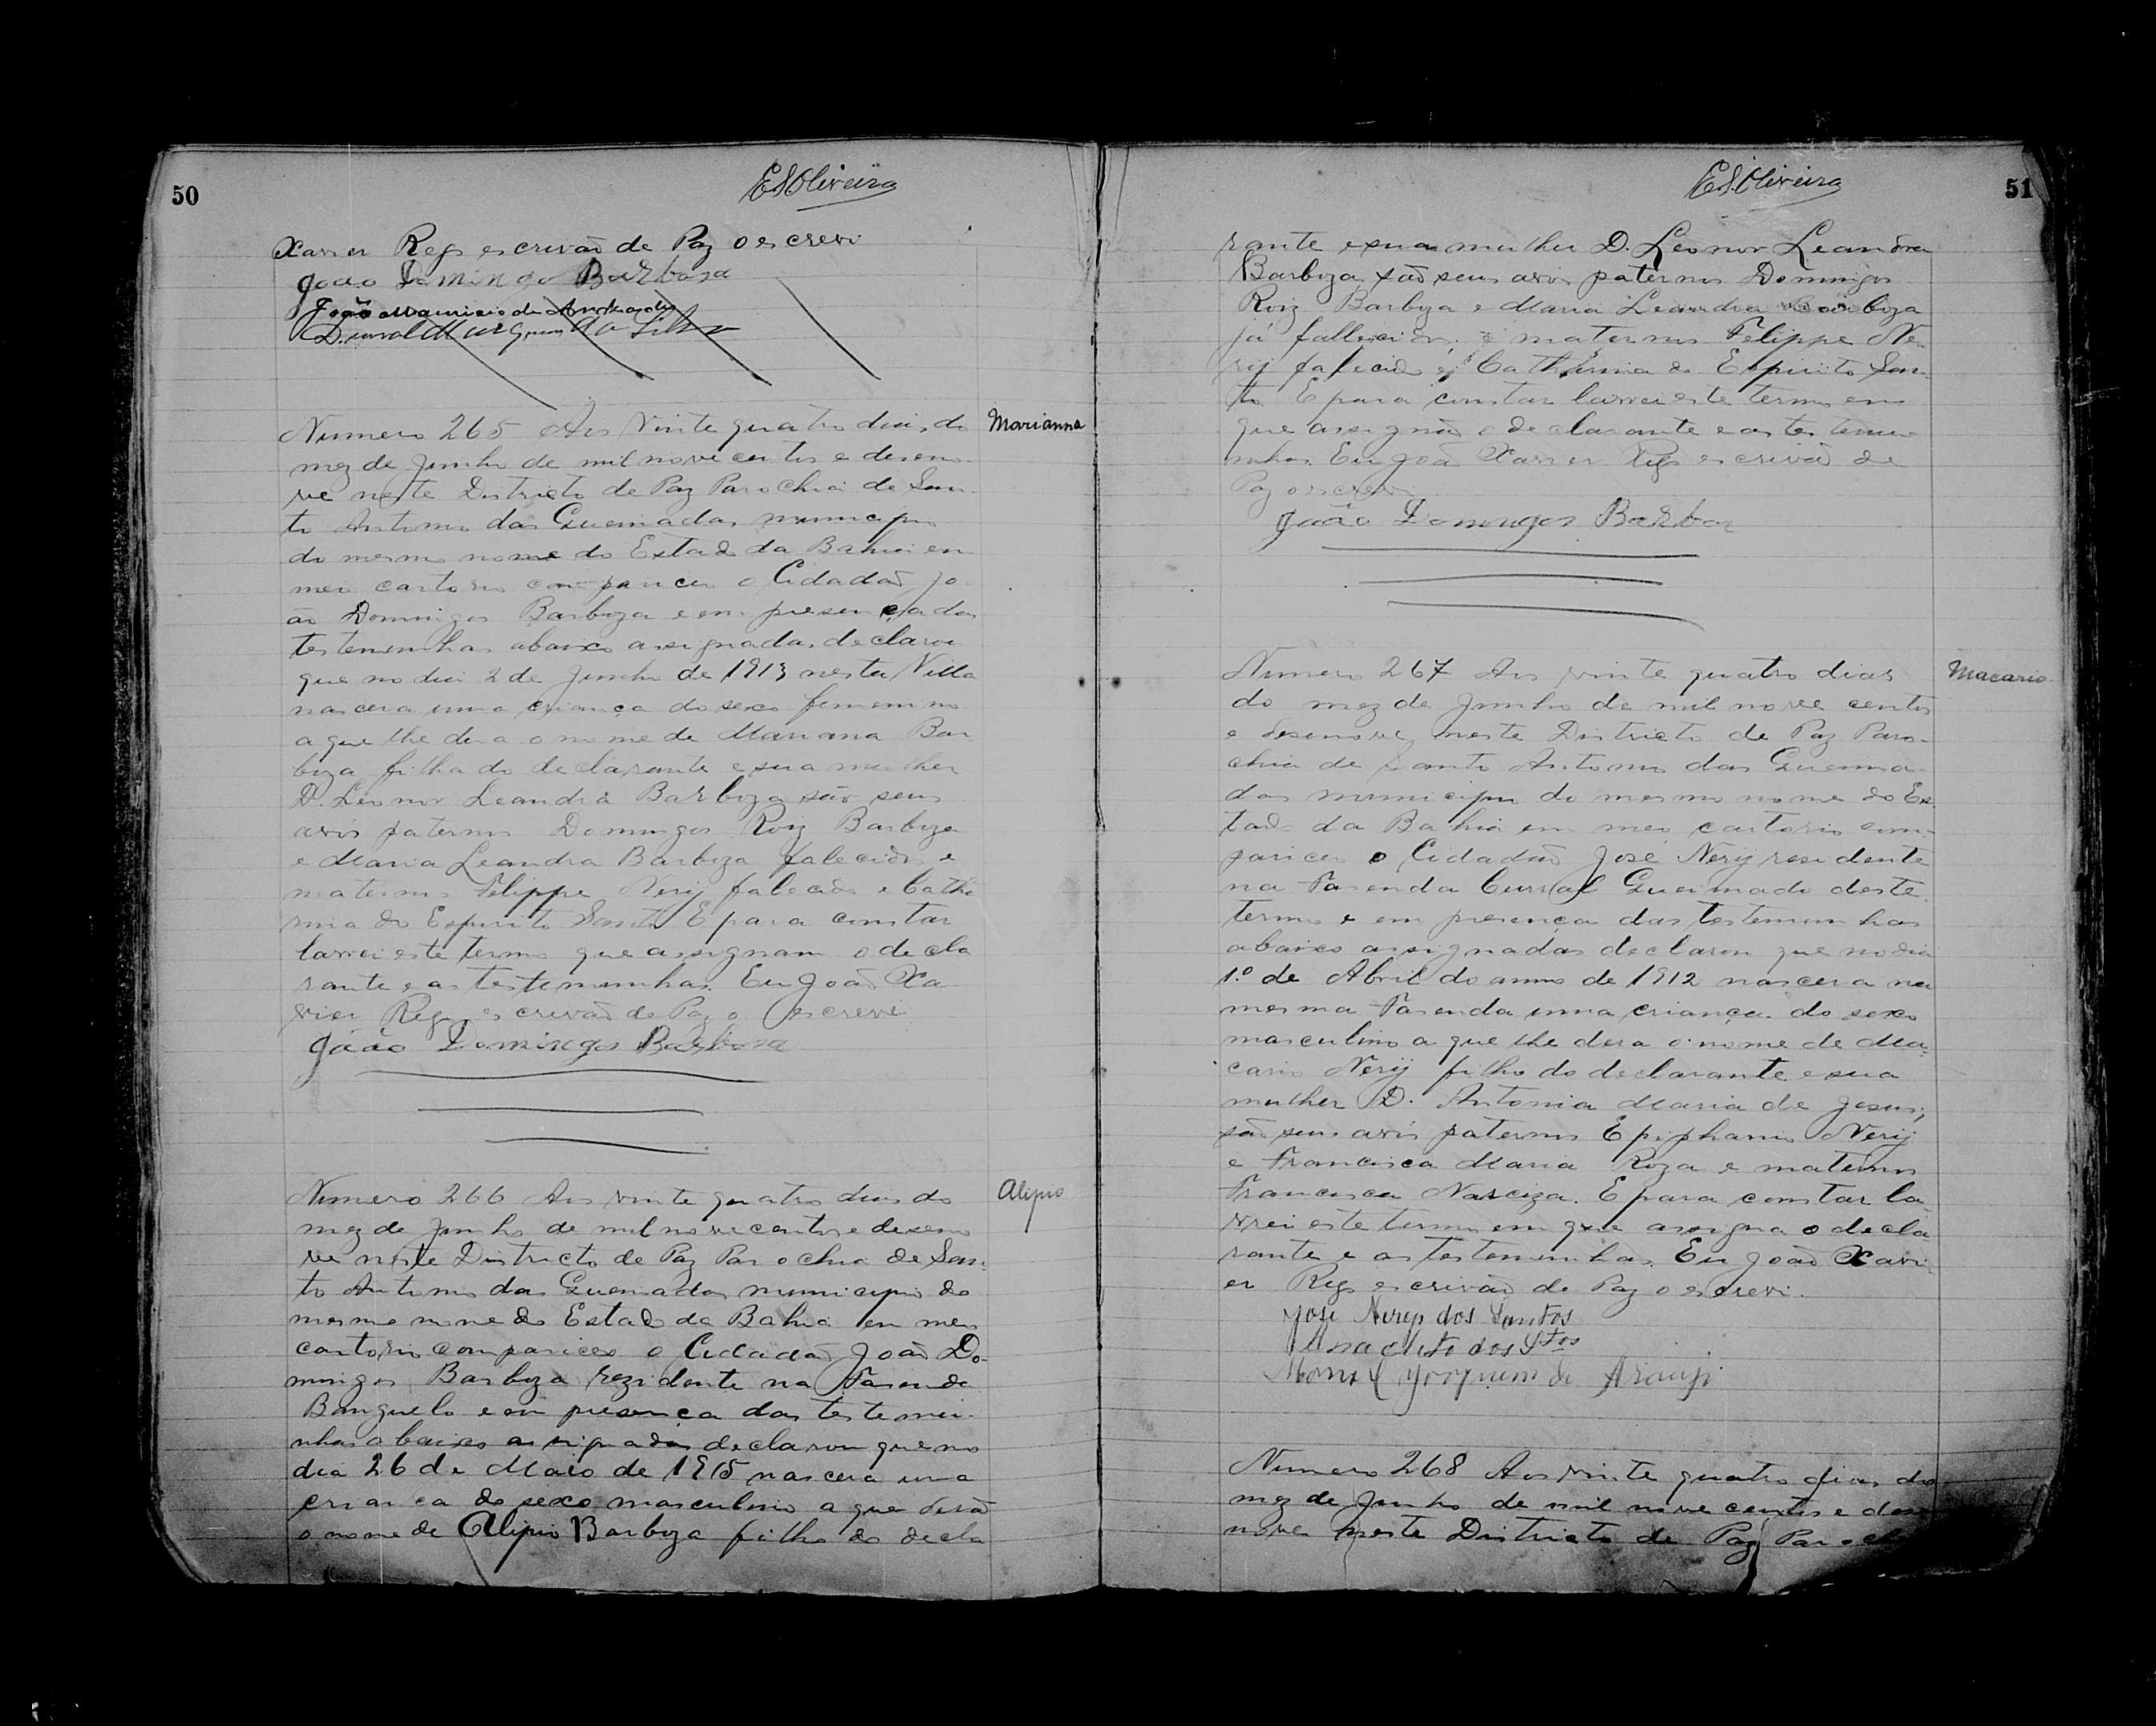 50
ESOliveira
Xavier Regs escrivão de Paz o escrevi
João Domingos Barbosa
João Mauricio de Andrade
Marques da Silva
Marianna
Numero 265 Aos vinte quatro dias do
mez de Junho de mil nove centos e deseno-
ve neste Districto de Paz Parochia de San-
to Antonio das Queimadas municipio
do mesmo nome do Estado da Bahia em
meo cartorio compareceu o Cidadão Jo-
ão Domingos Barboza e em presença das
testemunhas abaixo assignadas declarou
que no dia 2 de Junho de 1913 nesta Villa
nascera uma criança do sexo femenino
a que lhe dera o nome de Mariana Bar-
boza filha do declarante e sua mulher
D. Leonor Leandra Barboza são seus
avós paternos Domingos Roiz Barboza
e Maria Leandra Barboza falecidos e
maternos Felippe Nerij falecido e Catha
rina do Espirito Santo E para constar
lavrei este termo que assignam o decla
rante e as testemunhas. Eu João Xa-
vier Regs escrivão de Paz o escrevi
João Domingos Barbosa
Alipio
Numero 266 Aos vinte quatro dias do
mez de Junho de mil nove centos e deseno
ve neste Districto de Paz Parochia de San-
to Antonio das Queimadas municipio do
mesmo nome do Estado da Bahia em meo
cartorio compareceo o Cidadão João Do-
mingos Barboza rezidente na Fasenda
Banguelo e em presença das testemu-
nhas abaixo assignadas declarou que no
dia 26 de Maio de 1915 nascera uma
criança do sexo masculino a que derão
o nome de Alipio Barboza filho do decla
51
ESOliveira
rante e sua mulher D. Leonor Leandra
Barboza são seus avós paternos Domingos
Roiz Barboza e Maria Leandra Barboza
já fallecidos, e maternos Felippe Ne-
rij falecido e Catharina do Espirito San-
to. E para constar lavrei este termo em
que assignão o declarante e as testemu-
nhas. Eu João Xavier Regs escrivão de
Paz o escrevi
João Domingos Barbosa
Macario
Numero 267 Aos vinte quatro dias
do mez de Junho de mil nove centos
e desenove neste Districto de Paz Paro-
chia de Santo Antonio das Queima-
das municipio do mesmo nome do Es-
tado da Bahia em meo cartorio com-
pareceu o Cidadão José Nerij residente
na Fasenda Curral Queimado deste
termo e em presença das testemunhas
abaixo assignadas declarou que no dia
1.º de Abril do anno de 1912 nascera na
mesma Fasenda uma criança do sexo
masculino a que lhe dera o nome de Ma-
cario Nerij filho do declarante e sua
mulher D. Antonia Maria de Jesus,
são seus avós paternos Epiphanio Nerij
e Francisca Maria Roza e maternos
Francisca Narciza. E para constar la-
vrei este termo em que assigna o decla-
rante e as testemunhas. Eu João Xavi-
er Regs escrivão de Paz o escrevi.
José Nerys dos Santos
Anacleto dos Stos
Manoel Joaquim de Araujo
Numero 268 Aos vinte quatro dias do
mez de Junho de mil nove centos e dese
nove neste Districto de Paz Paroch